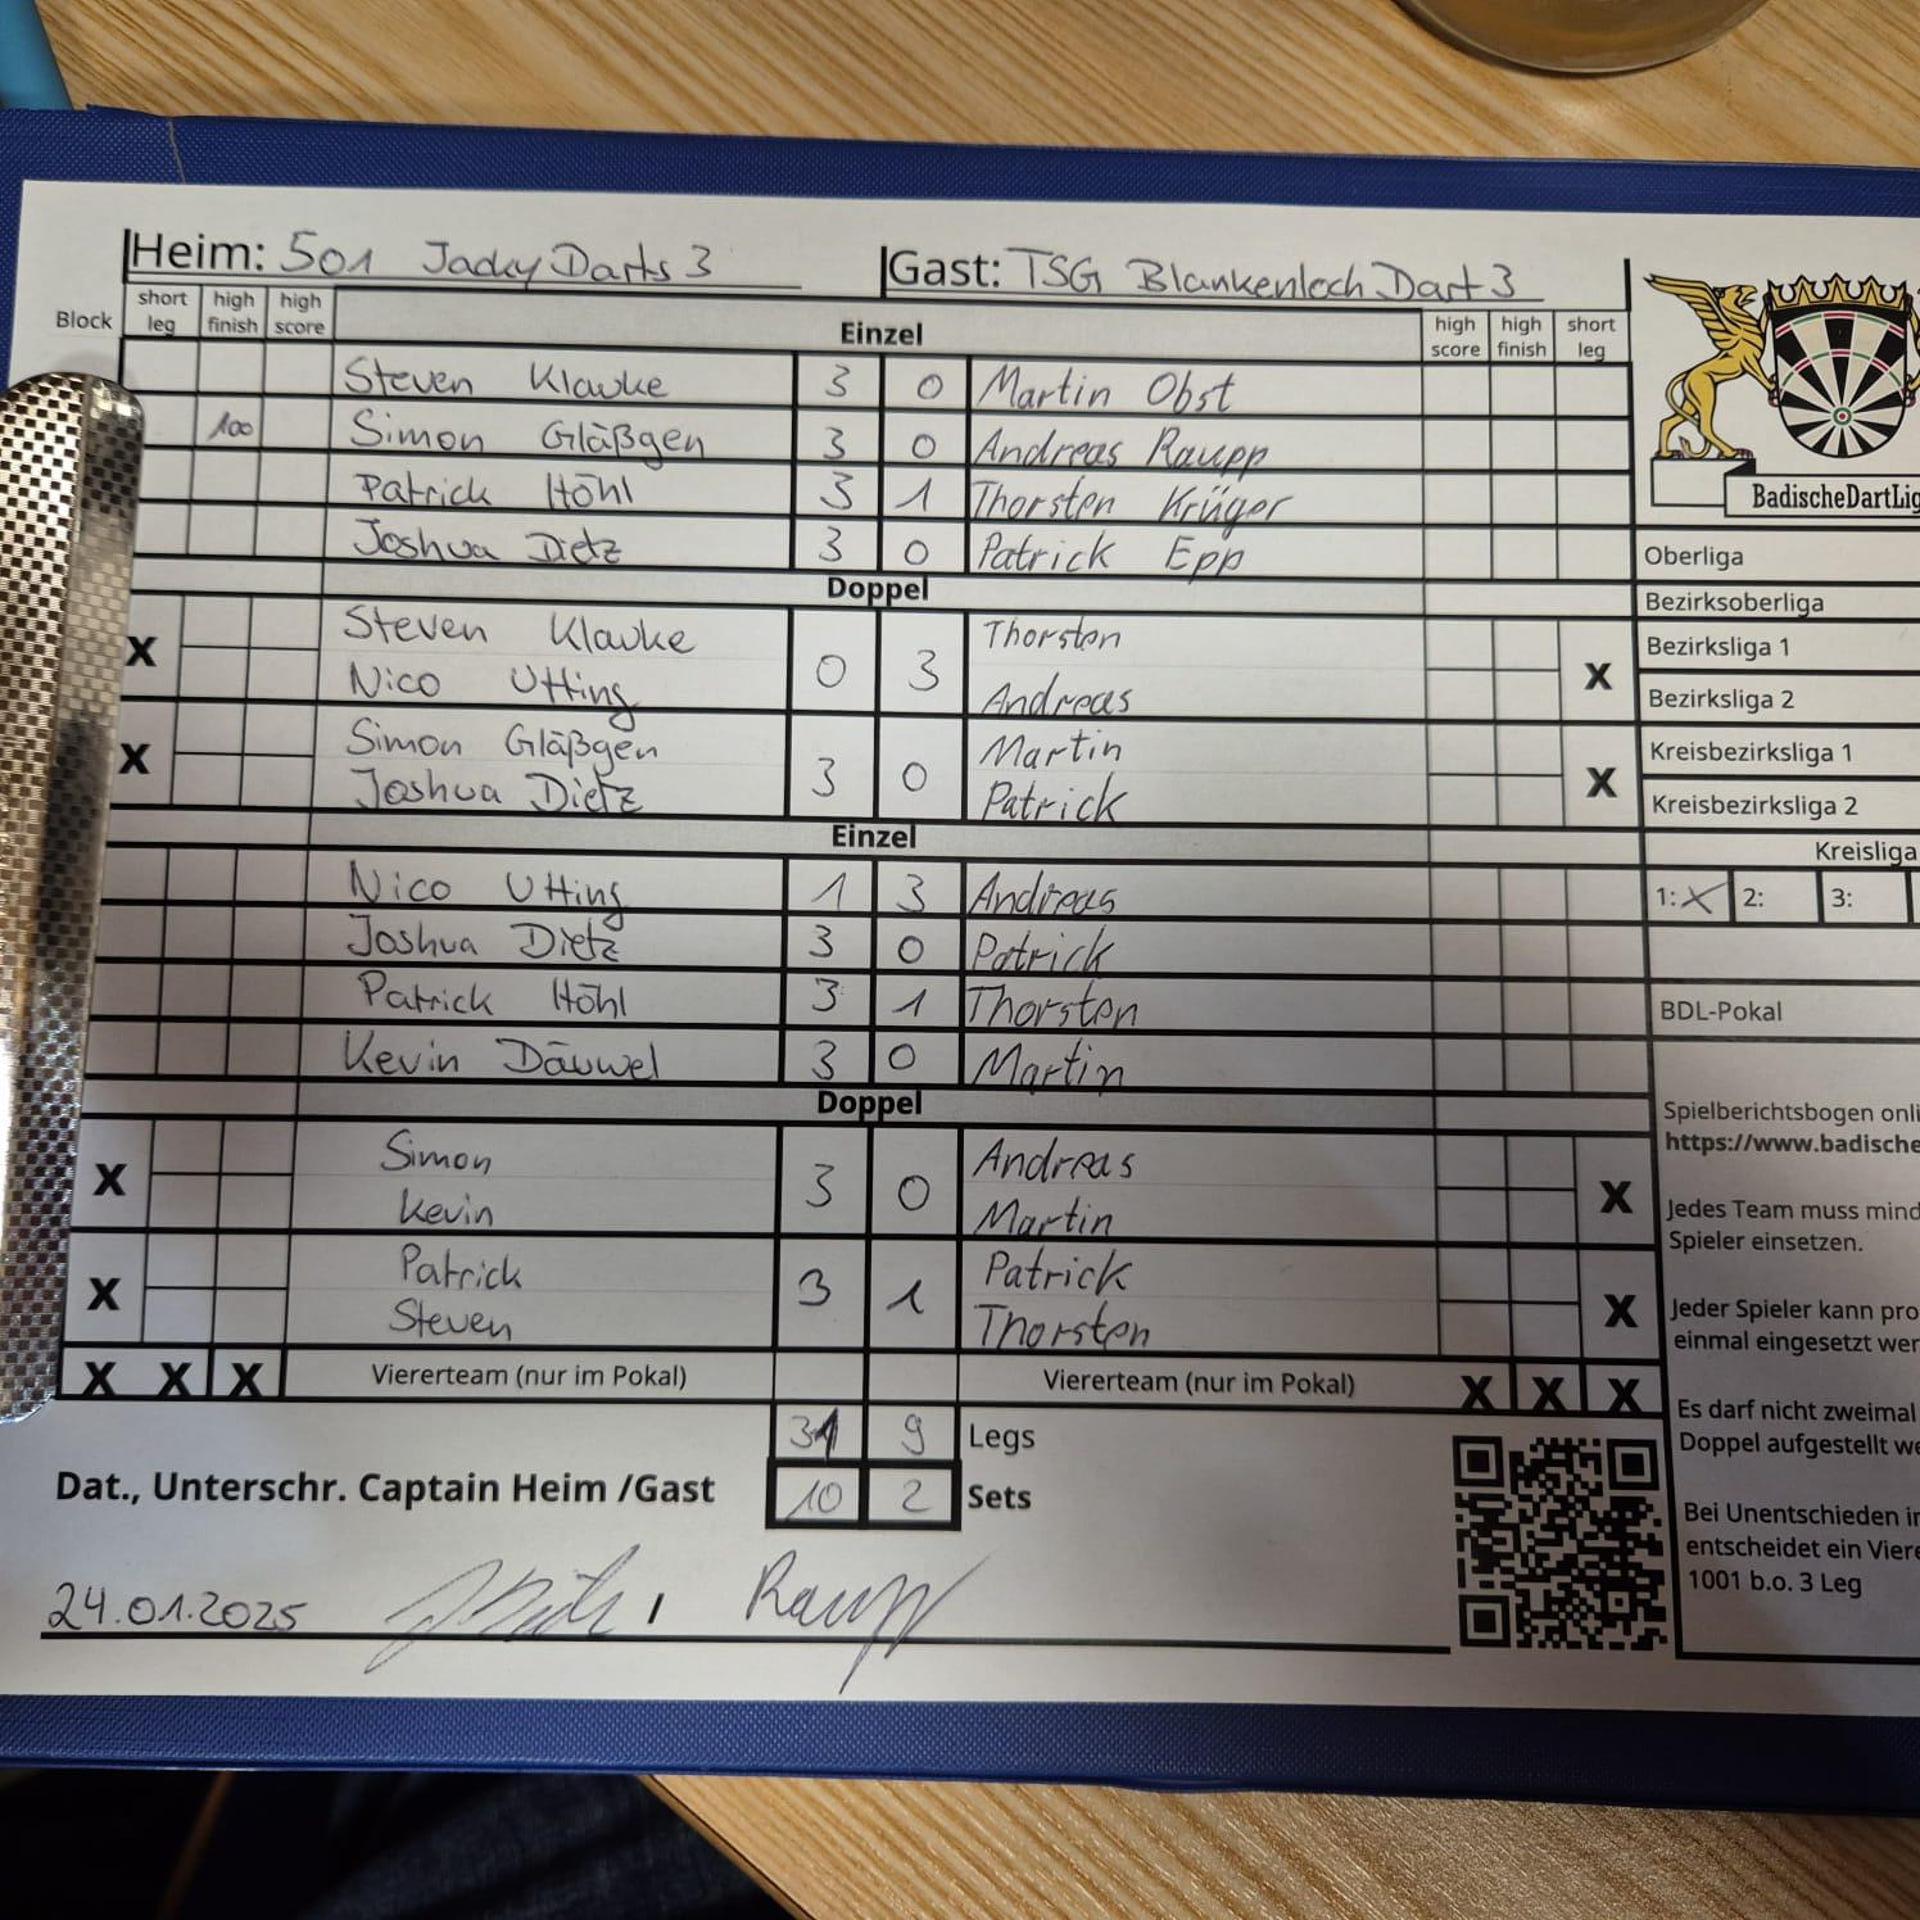 Heim: 501 Jacky Darts 3 Gast: TSG Blankenloch Dart 3
Block short leg high finish high score Einzel high score high finish short leg
Steven Klauke 3 0 Martin Obst
100 Simon Gläßgen 3 0 Andreas Raupp
Patrick Höhl 3 1 Thorsten Krüger
Joshua Dietz 3 0 Patrick Epp
Doppel
X Steven Klauke 0 3 Thorsten X
Nico Utting Andreas
X Simon Gläßgen 3 0 Martin X
Joshua Dietz Patrick
Einzel
Nico Utting 1 3 Andreas
Joshua Dietz 3 0 Patrick
Patrick Höhl 3 1 Thorsten
Kevin Däuwel 3 0 Martin
Doppel
X Simon 3 0 Andreas X
Kevin Martin
X Patrick 3 1 Patrick X
Steven Thorsten
X X X Viererteam (nur im Pokal) Viererteam (nur im Pokal) X X X
31 9 Legs
Dat., Unterschr. Captain Heim /Gast 10 2 Sets
24.01.2025 / Raupp
BadischeDartLig
Oberliga
Bezirksoberliga
Bezirksliga 1
Bezirksliga 2
Kreisbezirksliga 1
Kreisbezirksliga 2
Kreisliga
1: X 2: 3:
BDL-Pokal
Spielberichtsbogen onli
https://www.badische
Jedes Team muss mind
Spieler einsetzen.
Jeder Spieler kann pro
einmal eingesetzt wer
Es darf nicht zweimal
Doppel aufgestellt we
Bei Unentschieden in
entscheidet ein Viere
1001 b.o. 3 Leg